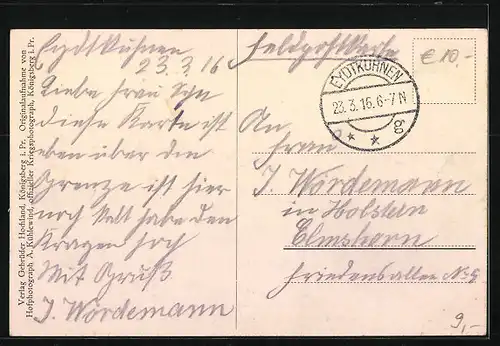 Verlag Gebrüder Hochland, Königsberg i. Pr. Originalaufnahme von
Hofphotograph A. Kühlewind, offizieller Kriegsphotograph, Königsberg i. Pr.
Eydtkuhnen
23.3.16
Liebe Frau
diese Karte ist
eben über den
Grenze ist hier
noch kalt habe den
Kragen hoch
Mit Gruß
J. Wördemann
Feldpostkarte
€ 10,-
EYDTKUHNEN
23.3.16.6-7N
* * g
An
Frau
J. Wördemann
in Holstein
Elmshorn
Friedensallee No
9,-